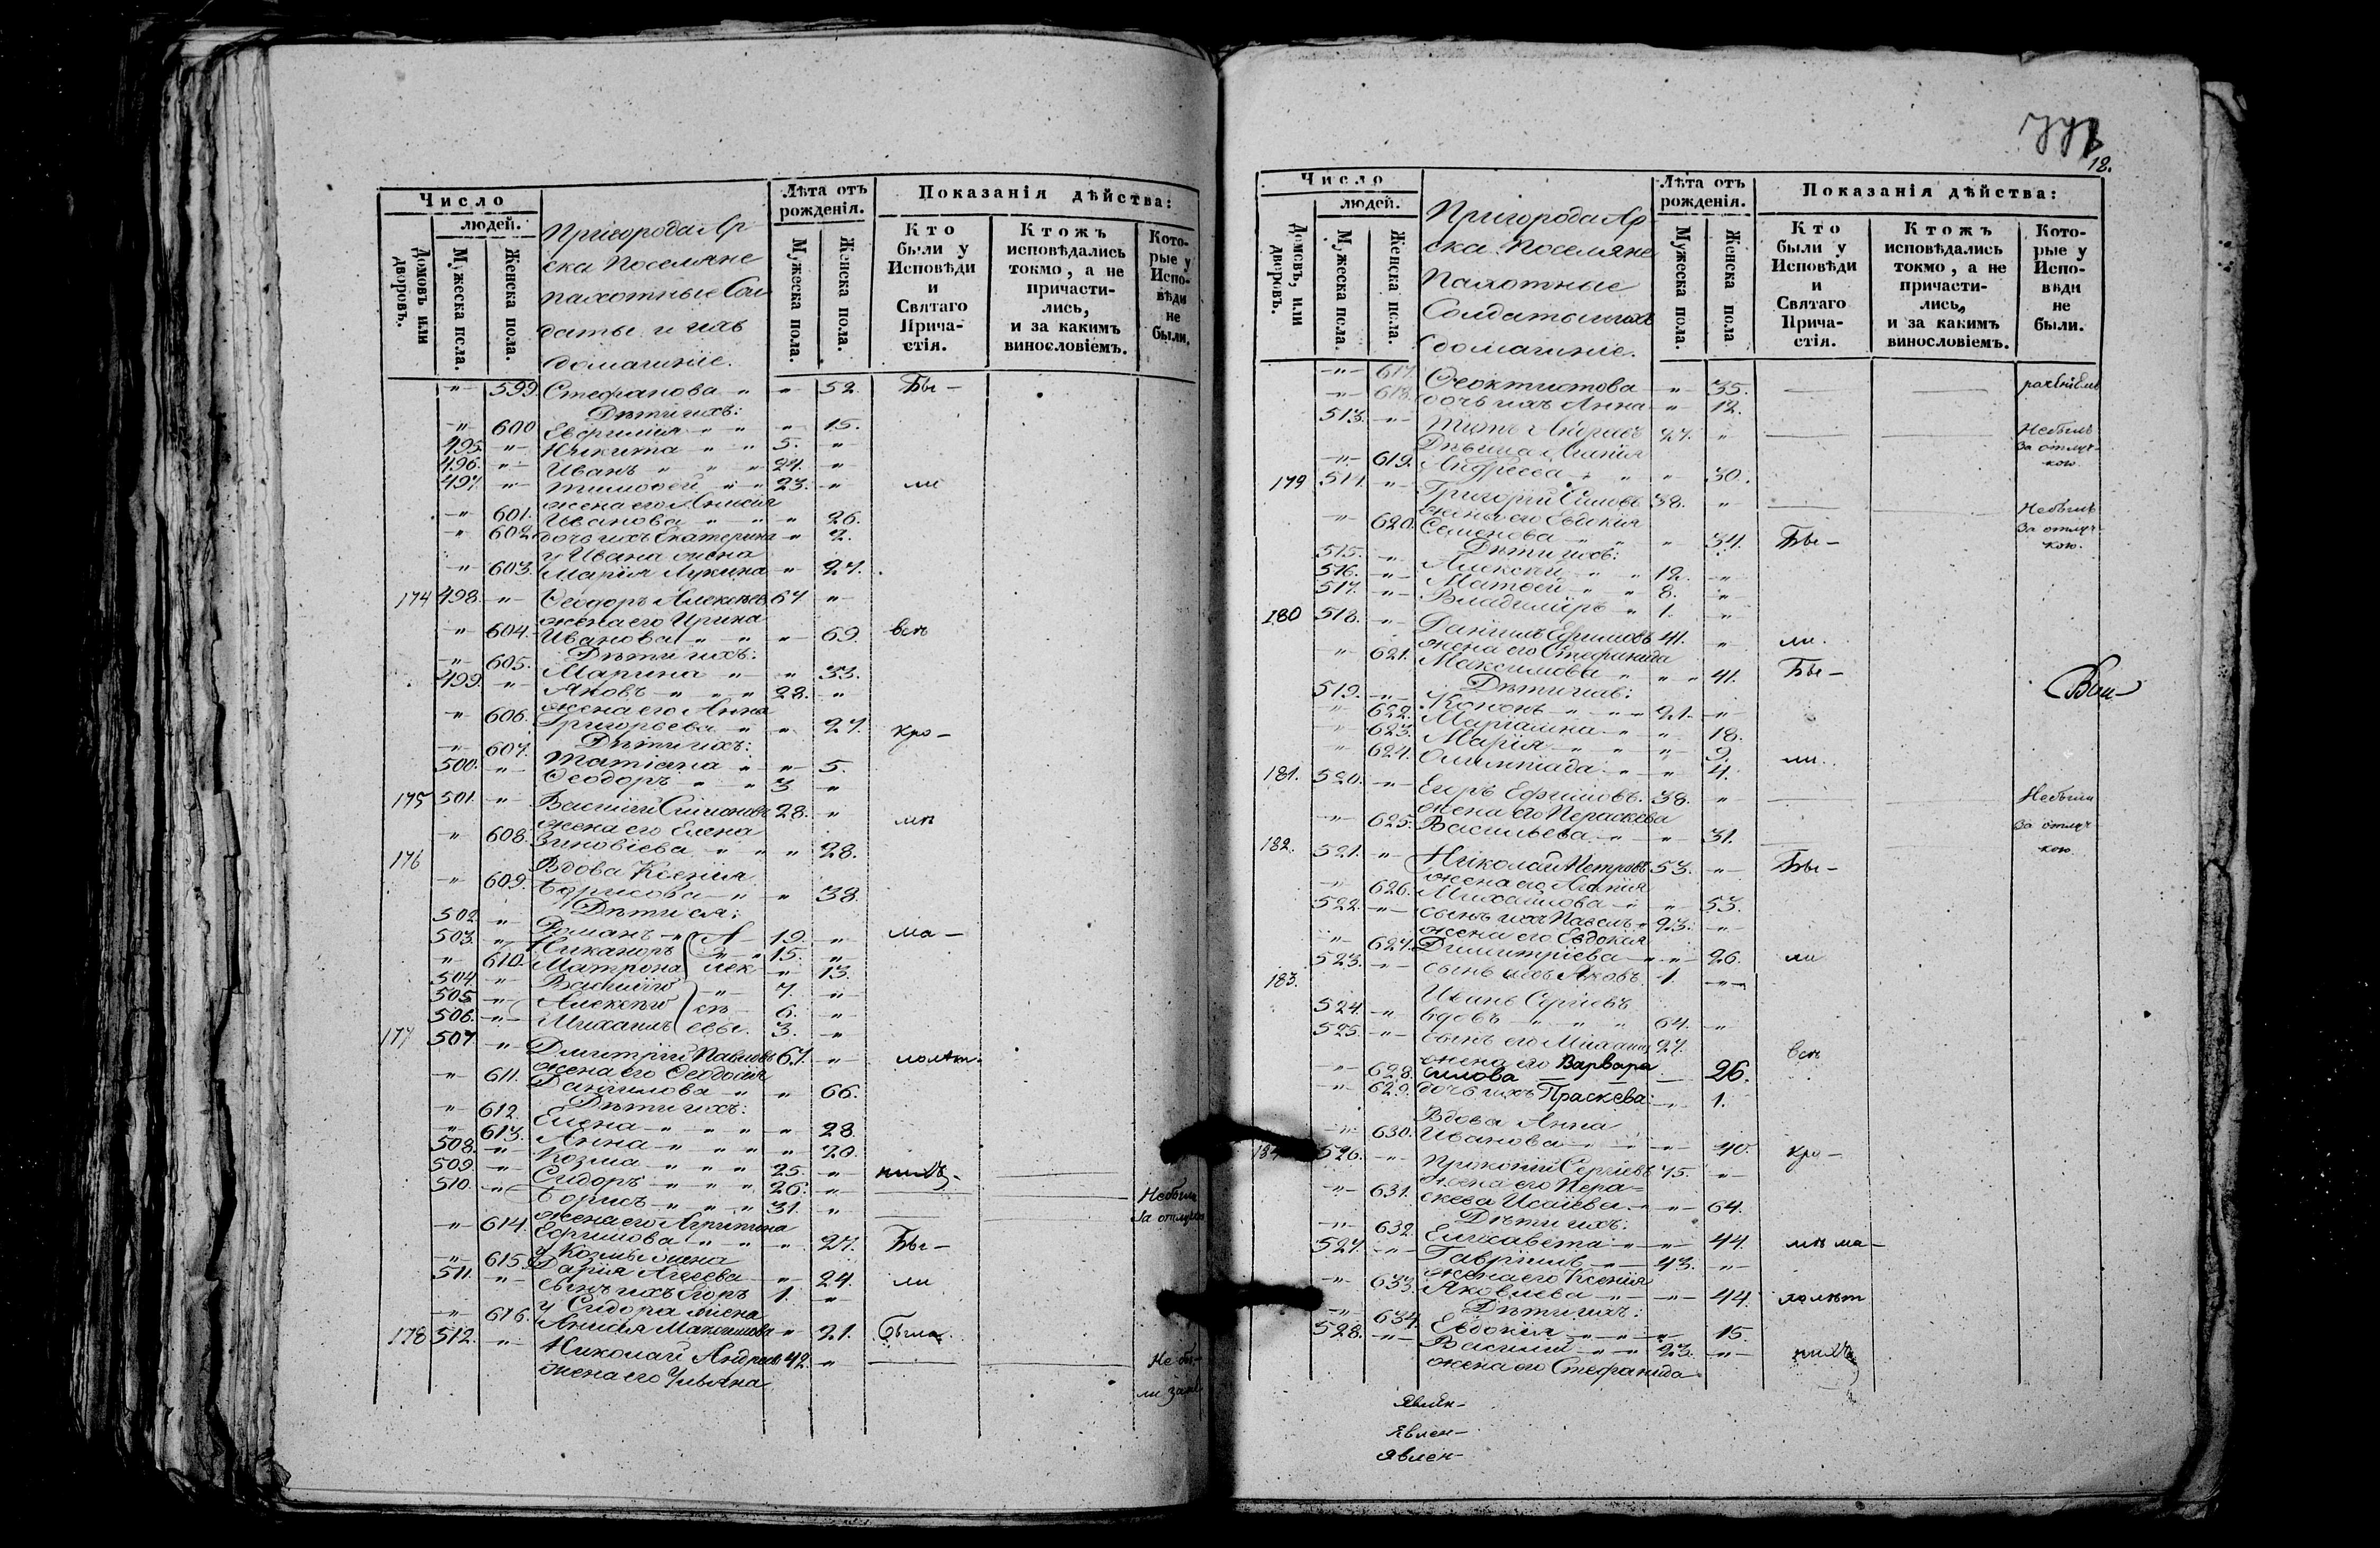 Число
людей.
Домовъ или дворовъ.
Мужеска пола.
Женска пола.
Пригорода Ар-
ска Поселяне
пахотные Сол
даты и ихъ
домашніе.
Лѣта отъ рожденія.
Мужеска пола.
Женска пола.
Показанія дѣйства:
Кто были у Исповѣди и Святаго Прича-стія.
Ктожъ исповѣдались токмо, а не причасти-лись, и за какимъ винословіемъ.
Кото-рые у Испо-вѣди не были.
" 599. Стефанова " " 52. Бы-
Дѣти ихъ:
" 600 Евфимія " " " 15.
495. " Никита " " 5. "
496. " Иванъ " " " 24. "
497. " Тимофей " " 23. " ли
жена его Анисія
" 601. Иванова " " " 26.
" 602. дочь ихъ Екатерина " 2.
у Ивана жена
" 603. Марія Лукина " 27.
174 498. " Ѳеодоръ Алексѣевъ 67 "
жена его Ирина
" 604. Иванова " " " 69. всѣ
Дѣти ихъ:
" 605. Марина " " 33.
499. " Яковъ " " " 28. "
жена его Анна
" 606. Григорьева " " 27. кро-
Дѣти ихъ:
" 607. Татіана " " 5.
500. " Ѳеодоръ " " 3 "
175 501. " Василій Симоновъ 28. "
жена его Елена мѣ
" 608. Зиновіева " " " 28.
176 Вдова Ксенія
" 609. Борисова " " 38.
Дѣти ея:
502. " Романъ " А- 19. " ма-
503. " Никаноръ " 15. "
" 610. Матрона лек- " 13.
504. " Василій " 7. "
505. " Алексѣй сѣ- 6. "
506. " Михаилъ евы. 3. "
177 507. " Дмитрій Павловъ 67. " лолѣт-
жена его Ѳеодосія
" 611. Данилова " " 66.
Дѣти ихъ:
" 612. Елена " " " " 28.
" 613. Анна " " " " 20.
508. " Козма " " " 25. "
509. " Сидоръ " " " 26. " нихъ-
510. " Борисъ " " " 31. " Небыли
жена его Агрипина За отлуч
" 614. Ефимова " " " 27. Бы-
у Козмы жена
" 615. Дарія Агеева " 24. ли
511. " сынъ ихъ Егоръ 1. "
у Сидора жена
" 616. Анисія Максимова " 21. была
178 512. " Николай Андреевъ 42. " Не бы-
жена его Ульяна ли за
18.
Число
людей.
Домовъ, или дворовъ.
Мужеска пола.
Женска пола.
Пригорода Ар-
ска Поселяне
Пахотные
Солдаты и ихъ
домашніе.
Лѣта отъ рожденія.
Мужеска пола.
Женска пола
Показанія дѣйства:
Кто были у Исповѣди и Святаго Прича-стія.
Ктожъ исповѣдались токмо, а не причасти-лись, и за какимъ винословіемъ.
Кото-рые у Испо-вѣди не были.
" 617. Ѳеоктистова " " 35.
" 618. дочь ихъ Анна " 12.
513. " Титъ Андреевъ 27. " Небылъ
Дѣвица Агапія За отлуч-
" 619. Андреева " " " 30. кою
179 514. " Григорій Силовъ 38. " Небылъ
жена его Евдокія За отлуч-
" 620. Семенова " " " 34. Бы- кою.
Дѣти ихъ:
515. " Алексѣй " " 12. "
516. " Матвей " " 8. "
517. " Владиміръ " 1. "
180 518. " Даніилъ Ефимовъ 41. " ли.
жена его Стефанида
" 621. Максимова " " " 41. Бы-
Дѣти ихъ:
519. " Кононъ " " " 21. "
" 622. Маріамна " " 18.
" 623. Марія " " " 9.
" 624. Олимпіада " " 4. ли.
181. 520. " Егоръ Ефимовъ. 38. " Небыли
жена его Пераскева За отлуч
" 625. Васильева " " 31. кою
182. 521. " Николай Петровъ 53. " Бы-
жена его Агапія
" 626. Михаилова " " 53.
522. " сынъ ихъ Павелъ " 23. "
жена его Евдокія
" 627. Димитріева " " 26. ли
523. " сынъ ихъ Яковъ 1. "
183. Иванъ Сергіевъ
524. " вдовъ " " " 64. "
525. " сынъ его Михаилъ 27. всѣ
жена его Варвара
" 628. силова — — 26.
" 629. дочь ихъ Праскева: " 1.
Вдова Анна
" 630. Иванова " " " 40. кро-
184 526. " Прокопій Сергіевъ 75. "
жена его Пера-
" 631. скева Исаіева " " 64.
Дѣти ихъ:
" 632. Елисавета " " 44. мѣ ма-
527. " Гавріилъ " " 43. "
жена его Ксенія
" 633. Яковлева " " " 44. лолѣт
Дѣти ихъ:
" 634. Евдокія " " " 15.
528. " Василій " " 23. " нихъ
жена его Стефанида
явлен-
явлен-
явлен-